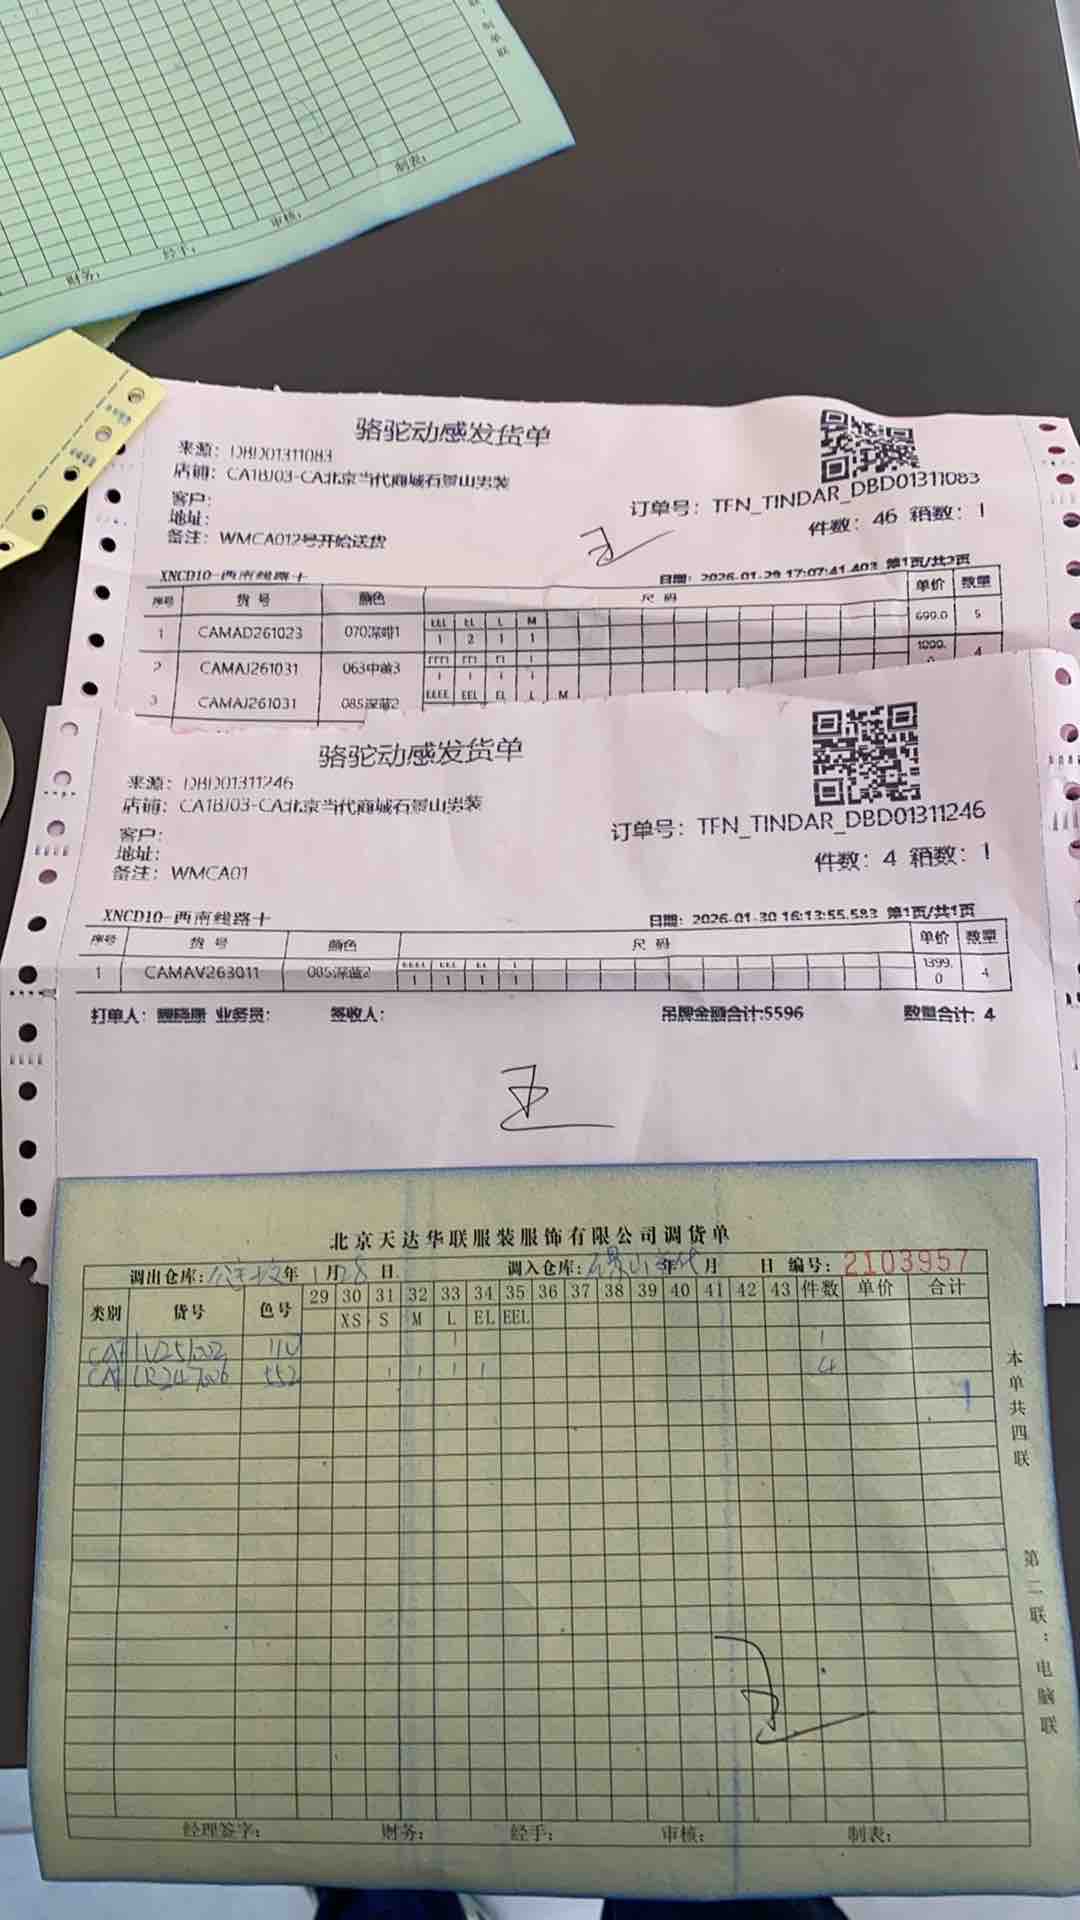 制单联
制表：
审核：
经手：
财务：
骆驼动感发货单
来源： DBD01311083
店铺： CA1BJ03-CA北京当代商城石景山男装
客户：
地址：
备注： WMCA012号开始送货
订单号： TFN_TINDAR_DBD01311083
件数： 46 箱数： 1
XNCD10-西南线路十
日期： 2026-01-29 17:07:41.403 第1页/共2页
序号 货号 颜色 尺码 单价 数量
EEL EL L M
1 CAMAD261023 070深啡1 1 2 1 1 699.0 5
2 CAMAJ261031 063中茵3 1 1 1 1 4
EEEE EEL EL L M
3 CAMAJ261031 085深蓝2
骆驼动感发货单
来源： DBD01311246
店铺： CA1BJ03-CA北京当代商城石景山男装
客户：
地址：
备注： WMCA01
订单号： TFN_TINDAR_DBD01311246
件数： 4 箱数： 1
XNCD10-西南线路十
日期： 2026-01-30 16:13:55.583 第1页/共1页
序号 货号 颜色 尺码 单价 数量
1 CAMAV263011 085深蓝2 1 1 1 1 1399.0 4
打单人： 业务员： 签收人： 吊牌金额合计:5596 数量合计: 4
北京天达华联服装服饰有限公司调货单
调出仓库： 年 1月28日 调入仓库： 年 月 日 编号：2103957
类别 货号 色号 29 30 31 32 33 34 35 36 37 38 39 40 41 42 43 件数 单价 合计
XS S M L EL EEL
CA 1V251002 110 1 1
CA 1R247006 552 1 1 1 1 4
本单共四联
第二联：电脑联
经理签字： 财务： 经手： 审核： 制表：